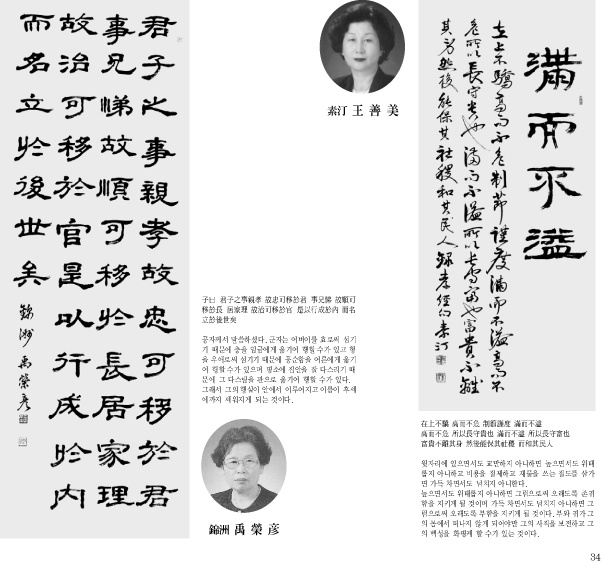 君子之事親孝故忠可移於君
事兄悌故順可移於長居家理
故治可移於官是以行成於內
而名立於後世矣
錦洲 禹榮彦
素汀 王善美
子曰 君子之事親孝 故忠可移於君 事兄悌 故順可
移於長 居家理 故治可移於官 是以行成於內 而名
立於後世矣
공자께서 말씀하셨다. 군자는 어버이를 효로써 섬기
기 때문에 충을 임금에게 옮기어 행할 수가 있고 형
을 우애로써 섬기기 때문에 공순함을 어른에게 옮기
어 행할 수가 있으며 평소에 집안을 잘 다스리기 때
문에 그 다스림을 관으로 옮기어 행할 수가 있다.
그래서 그의 행실이 안에서 이루어지고 이름이 후세
에까지 세워지게 되는 것이다.
錦洲 禹榮彦
滿而不溢
在上不驕高而不危制節謹度滿而不溢高而不
危所以長守貴也滿而不溢所以長守富也富貴不離
其身然後能保其社稷和其民人 錄孝經句 素汀
在上不驕 高而不危 制節謹度 滿而不溢
高而不危 所以長守貴也 滿而不溢 所以長守富也
富貴不離其身 然後能保其社稷 而和其民人
윗자리에 있으면서도 교만하지 아니하면 높으면서도 위태
롭지 아니하고 비용을 절제하고 재물을 쓰는 절도를 삼가
면 가득 차면서도 넘치지 아니한다.
높으면서도 위태롭지 아니하면 그럼으로써 오래도록 존귀
함을 지키게 될 것이며 가득 차면서도 넘치지 아니하면 그
럼으로써 오래도록 부함을 지키게 될 것이다. 부와 귀가 그
의 몸에서 떠나지 않게 되어야만 그의 사직을 보전하고 그
의 백성을 화평케 할 수가 있는 것이다.
34